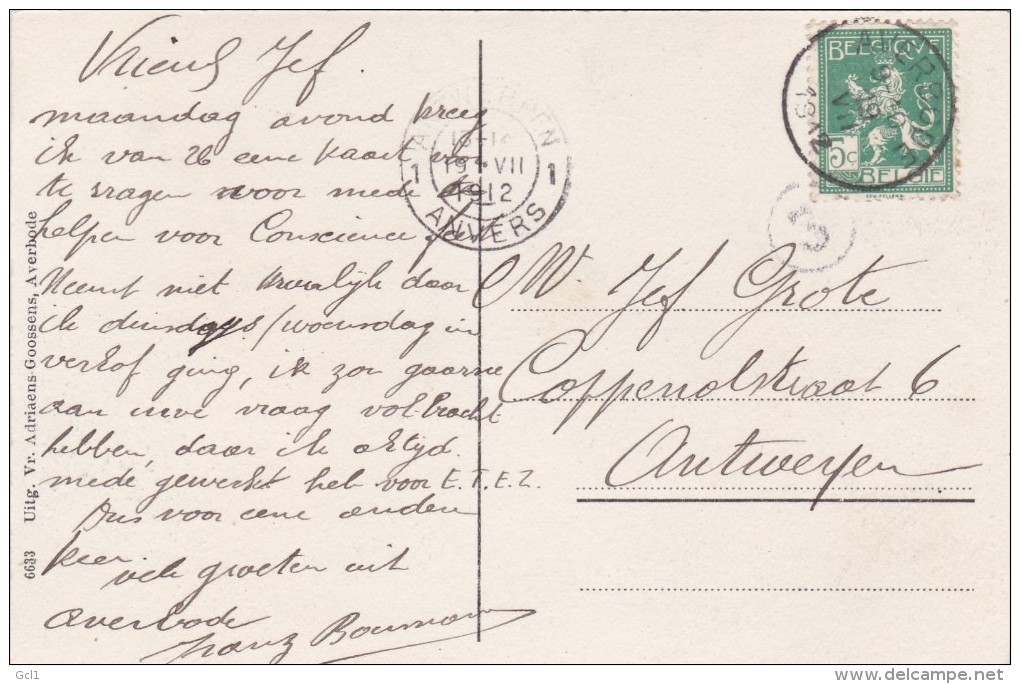 Vriend Jef.
maandag avond kreeg
ik van 26 eene kaart
te vragen voor mede te
helpen voor Conscience
Neemt niet kwalijk daar
ik dinsdags/woensdag in
verlof ging, ik zou gaarne
aan uwe vraag vol-bracht
hebben, daar ik altijd
mede gewerkt heb voor E.T.E.Z.
Dus voor eene anderen
keer
vele groeten uit
averbode
Franz Bouman
6633 Uitg. Vr. Adriaens-Goossens, Averbode
ANTWERPEN
1 19 VII 1
1912
ANVERS
BELGIQUE
5c
BELGIË
AVERBODE
1912
3
M. Jef Grote
Coppenolstraat 6
Antwerpen
Gcl1
www.delcampe.net